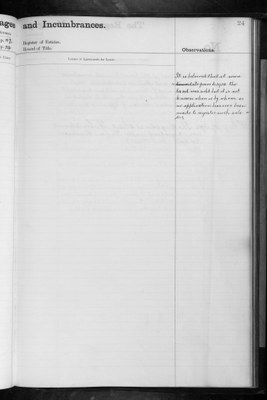 ages and Incumbrances.
24
Register of Estates.
Record of Title.
Observations.
It is believed that at some
date years ago the
land was sold but it is not
known when or by whom as
no application has ever been
made to register such sale